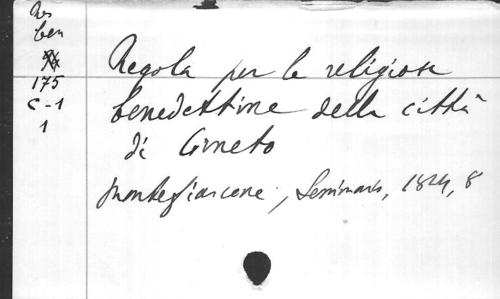 Res
ben
175
C-1
1
Regola per le religiose
benedettine della città
di Corneto
Montefiascone, Seminario, 1824, 8